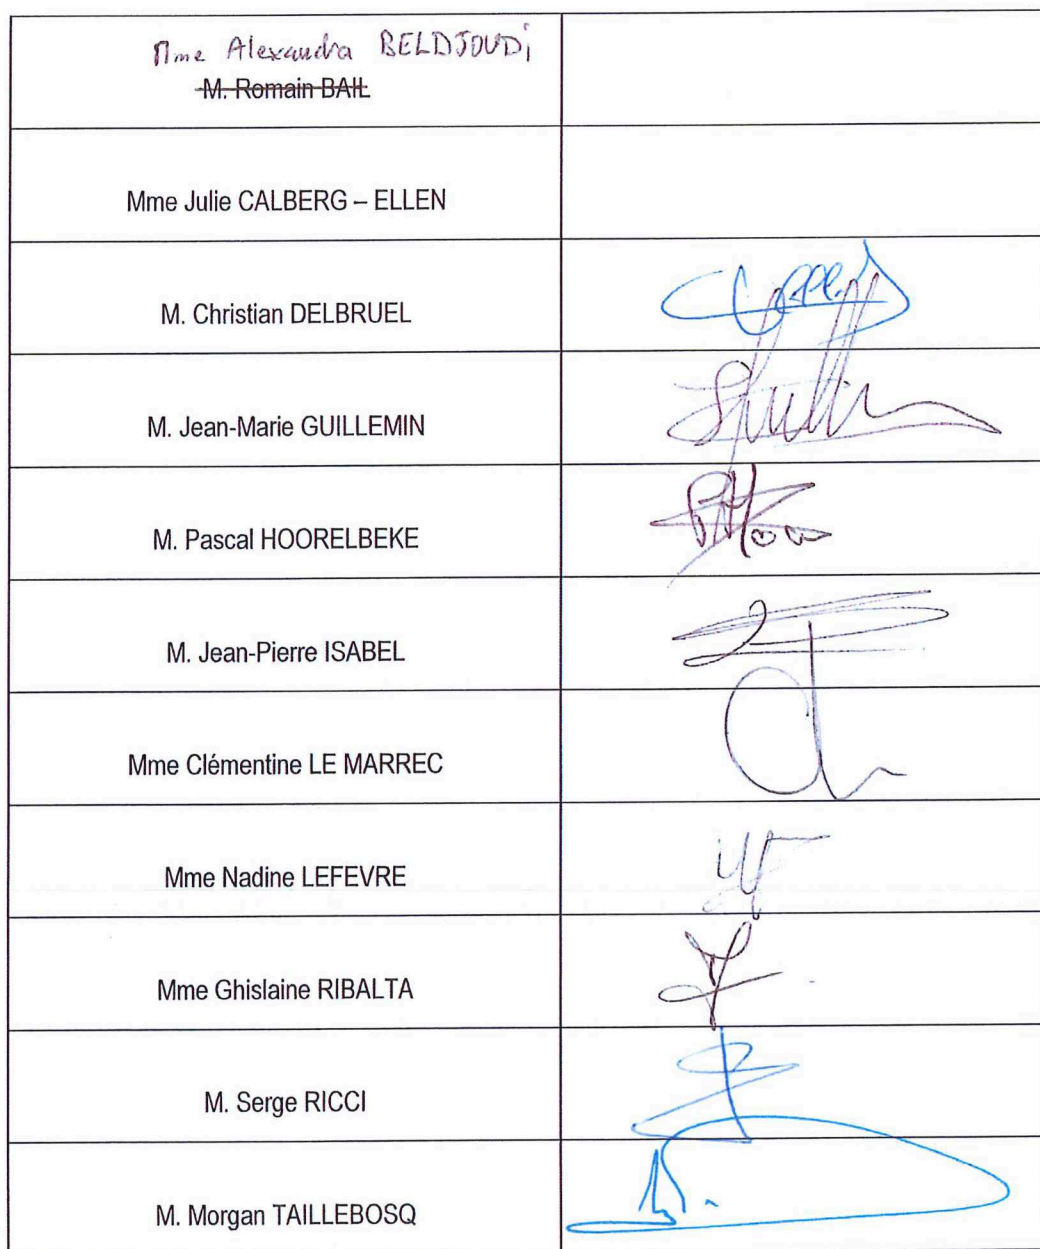 Mme Alexandra BELDJOUDi
M. Romain BAIL
Mme Julie CALBERG – ELLEN
M. Christian DELBRUEL
M. Jean-Marie GUILLEMIN
M. Pascal HOORELBEKE
M. Jean-Pierre ISABEL
Mme Clémentine LE MARREC
Mme Nadine LEFEVRE
Mme Ghislaine RIBALTA
M. Serge RICCI
M. Morgan TAILLEBOSQ